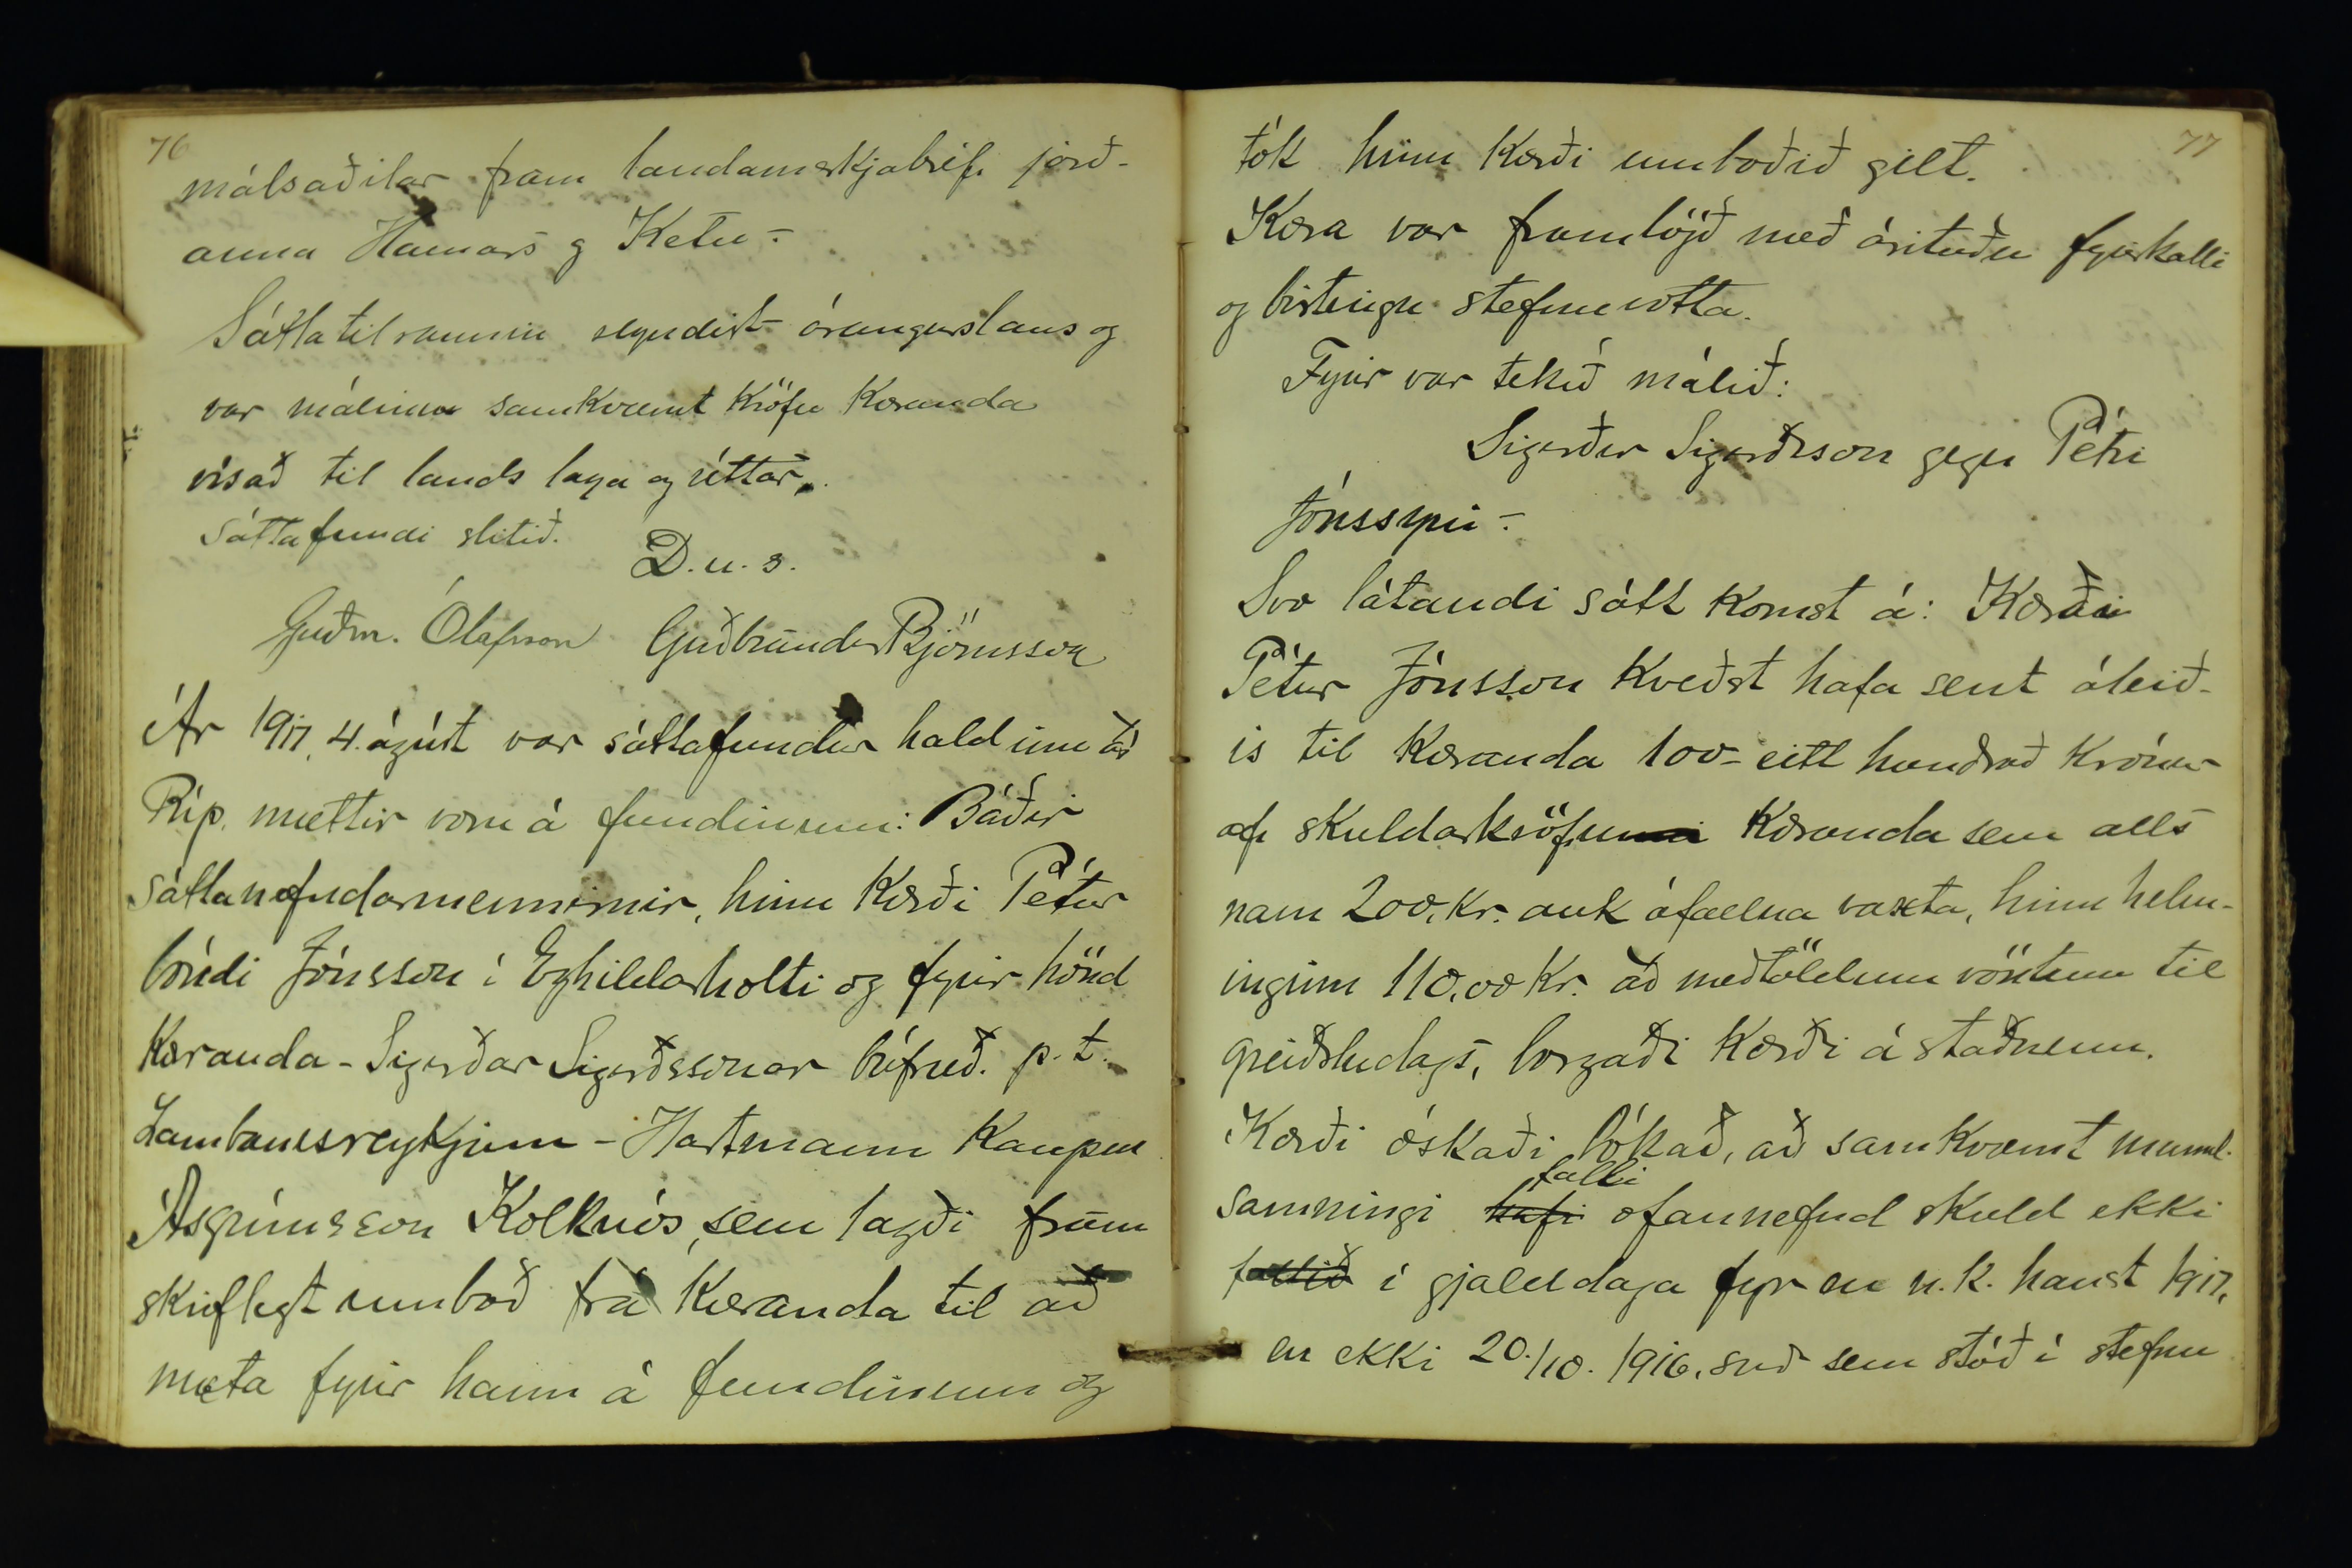 76
málsaðilar fram landamerkjabréf jörð-
anna Hamars og Ketu -
Sáttatilraunin reyndist árangurslaus og
var málinu samkvæmt kröfu Kæranda
vísað til lands laga og réttar.
Sáttafundi slitið.
D. u. s.
Guðm. Ólafsson Guðbrandur Björnsson
Ár 1917, 4. ágúst var sáttafundur haldinn að
Ríp. mættir voru á fundinum: Báðir
sáttanefndarmennirnir, hinn Kærði Pétur
bóndi Jónsson í Eyhildarholti og fyrir hönd
Kæranda - Sigurðar Sigurðssonar búfræð. p. t.
Lambanesreykjum - Hartmann Kaupm
Ásgrímsson Kolkuós, sem lagði fram
skriflegt umboð frá Kæranda til að
mæta fyrir hann á fundinum og
77
tók hinn Kærði umboðið gilt.
Kæra var framlögð með árituðu fyrirkalli
og birtingu stefnuvotta.
Fyrir var tekið málið:
Sigurður Sigurðsson gegn Pétri
Jónssyni -
Svo látandi sátt komst á: Kærði
Pétur Jónsson Kveðst hafa sent áleið-
is til Kæranda 100 - eitt hundrað Krónur
af skuldarkröfu Kæranda sem alls
nam 200, Kr. auk áfallna vaxta, hinn helm-
inginn 110,00 Kr. að meðtöldum vöxtum til
greiðsludags, borgaði Kærði á staðnum.
Kærði óskaði bókað, að samkvæmt munnl.
falli
samningi hafi ofannefnd skuld ekki
fallið í gjalddaga fyr en n.k. haust 1917,
en ekki 20./10. 1916, svo sem stóð í stefnu